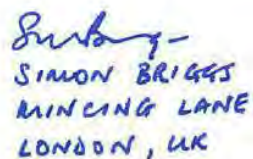 SIMON BRIGGS
MINCING LANE
LONDON, UK